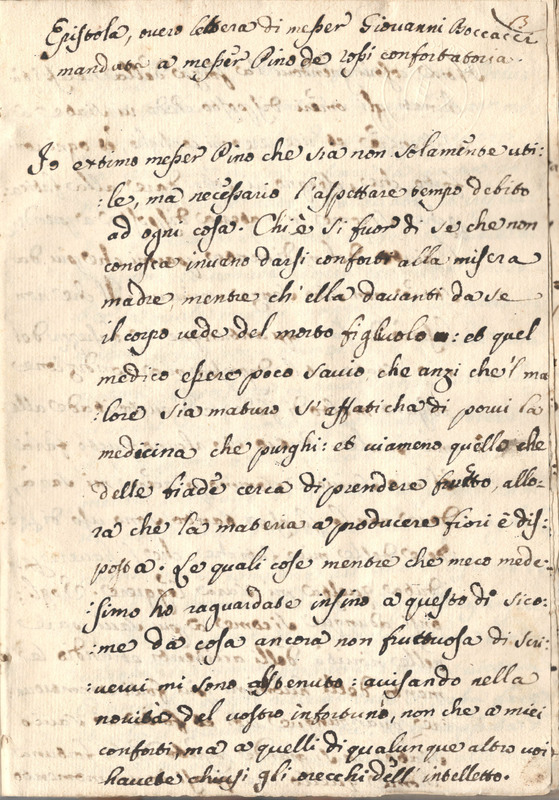 13
Epistola, overo lettera di messer Giovanni Boccacci
mandata a messer Pino de rossi confortatoria.
Io extimo messer Pino che sia non solamente uti:
:le, ma necessario l'aspettare tempo debito
ad ogni cosa. Chi è si fuor di se che non
conosca invano darsi conforti alla misera
madre, mentre ch'ella davanti da se
il corpo vede del morto figliuolo: et quel
medico essere poco savio, che anzi che'l ma
:lore sia maturo s'affatica di porvi la
medicina che purghi: et viameno quello che
delle biade cerca di prendere frutto, allo:
ra che la materia a producere fiori è dis:
posta. Le quali cose mentre che meco mede:
:simo ho raguardate insino a questo dì sico:
:me da cosa ancora non fruttuosa di scri:
:vervi mi sono abstenuto: avisando nella
novità del vostro infortunio, non che a miei
conforti, ma a quelli di qualunque altro voi
havete chiusi gli orecchi dell'intelletto.